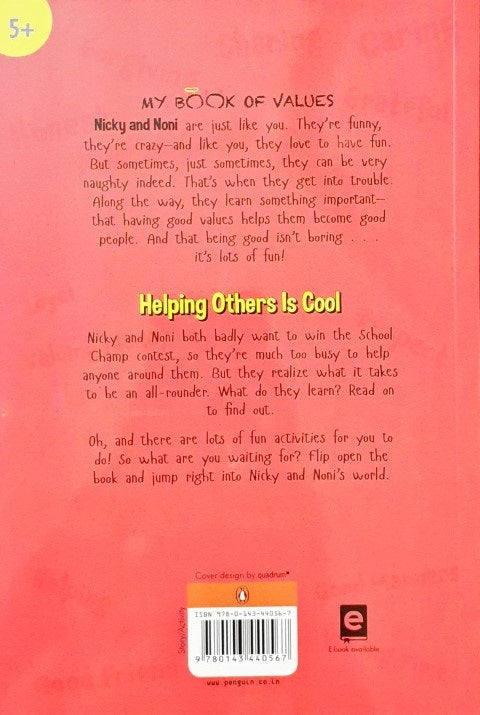 5+
MY BOOK OF VALUES
Nicky and Noni are just like you. They're funny,
they're crazy—and like you, they love to have fun.
But sometimes, just sometimes, they can be very
naughty indeed. That's when they get into trouble.
Along the way, they learn something important—
that having good values helps them become good
people. And that being good isn't boring . . .
it's lots of fun!
Helping Others Is Cool
Nicky and Noni both badly want to win the School
Champ contest, so they're much too busy to help
anyone around them. But they realize what it takes
to be an all-rounder. What do they learn? Read on
to find out.
Oh, and there are lots of fun activities for you to
do! So what are you waiting for? Flip open the
book and jump right into Nicky and Noni's world.
Cover design by quadrum
Story/Activity
ISBN 978-0-143-44056-7
9 780143 440567
www.penguin.co.in
e
E-book available
Sharing
Caring
Grateful